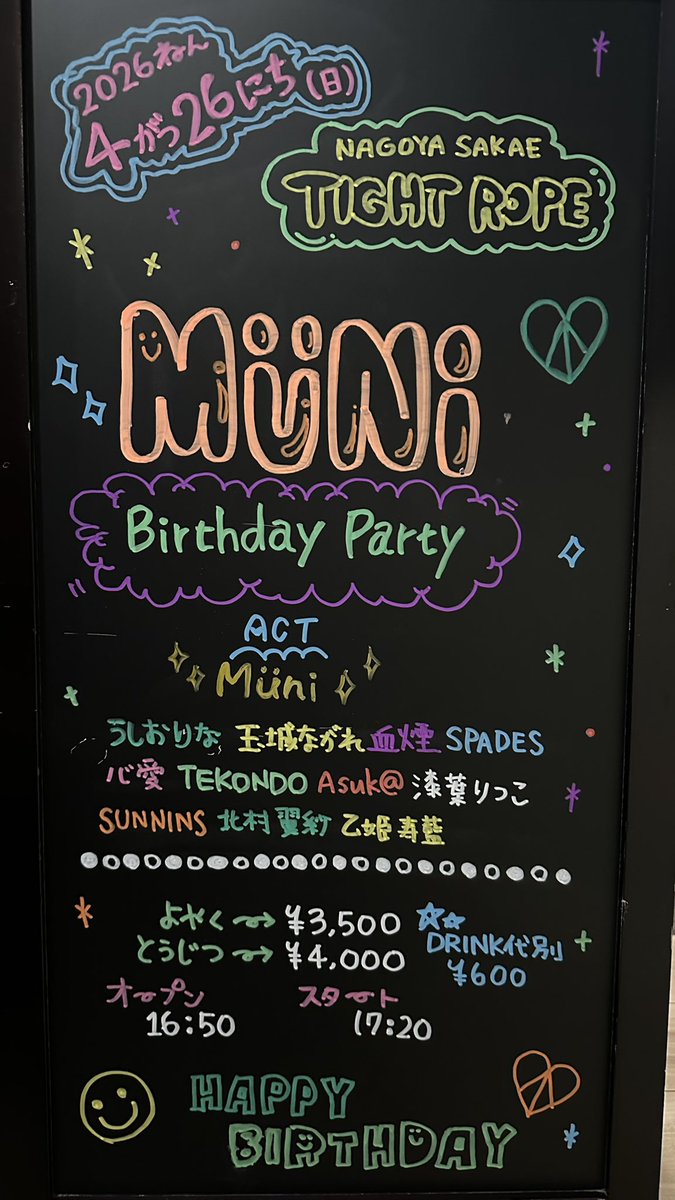 2026ねん
4がつ26にち(日)
NAGOYA SAKAE
TIGHT ROPE
MüNi
Birthday Party
ACT
Müni
うしおりな 玉城ながれ 血煙 SPADES
心愛 TEKONDO Asuk@ 漆葉りっこ
SUNNINS 北村翼紗 乙姫寿藍
よやく→¥3,500
とうじつ→¥4,000
DRINK代別
¥600
オープン スタート
16:50 17:20
HAPPY
BIRTHDAY